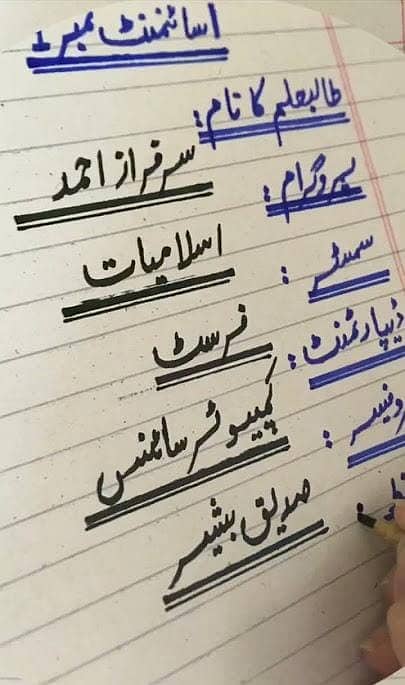 اسائمنٹ نمبر 1
طالبعلم کا نام:
سرفراز احمد
پروگرام:
اسلامیات
سمسٹر:
فرسٹ
ڈیپارٹمنٹ:
کمپیوٹر سائنس
روفیسر:
صدیق بشیر